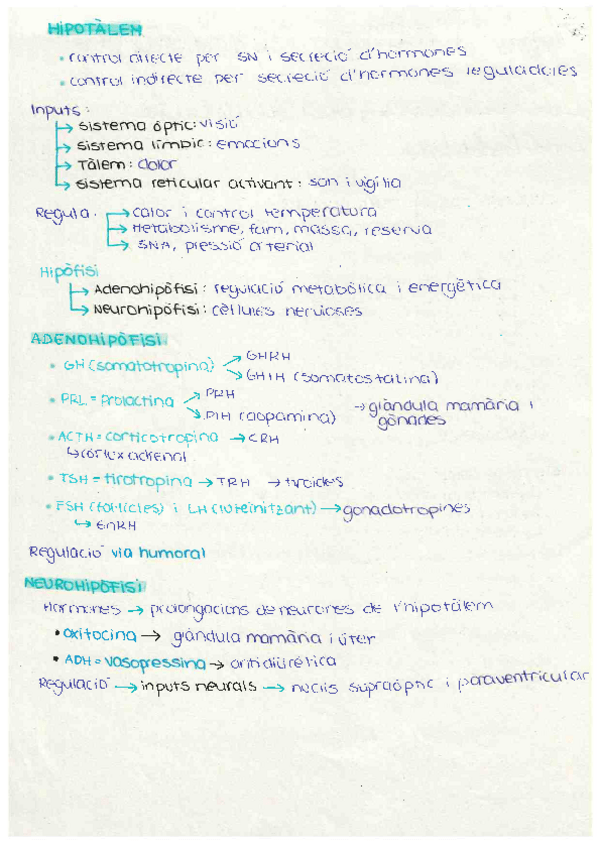 HIPOTÀLEM
• control directe per SN i secreció d'hormones
• control indirecte per secreció d'hormones reguladores
Inputs:
→ sistema òptic: visió
→ sistema límbic: emocions
→ Tàlem: dolor
→ sistema reticular activant: son i vigília
Regula: → calor i control temperatura
→ Metabolisme, fam, massa, reserva
→ SNA, pressió arterial
Hipòfisi
→ Adenohipòfisi: regulació metabòlica i energètica
→ Neurohipòfisi: cèl·lules nervioses
ADENOHIPÒFISI
• GH (somatotropina) → GHRH
→ GHIH (somatostatina)
• PRL = Prolactina → PRH
→ PIH (dopamina) → glàndula mamària i gònades
• ACTH = corticotropina → CRH
↳ còrtex adrenal
• TSH = tirotropina → TRH → tiroides
• FSH (fol·licles) i LH (luteinitzant) → gonadotropines
↳ GnRH
Regulació via humoral
NEUROHIPÒFISI
Hormones → prolongacions de neurones de l'hipotàlem
• oxitocina → glàndula mamària i úter
• ADH = vasopressina → antidiürètica
Regulació → inputs neurals → nuclis supraòptic i paraventricular